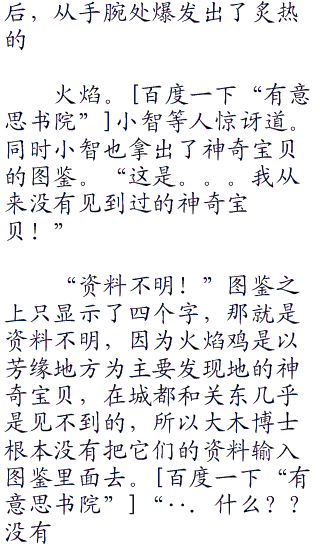 后，从手腕处爆发出了炙热
的
火焰。[百度一下“有意
思书院”]小智等人惊讶道。
同时小智也拿出了神奇宝贝
的图鉴。“这是。。。我从
来没有见到过的神奇宝
贝！”
“资料不明！”图鉴之
上只显示了四个字，那就是
资料不明，因为火焰鸡是以
芳缘地方为主要发现地的神
奇宝贝，在城都和关东几乎
是见不到的，所以大木博士
根本没有把它们的资料输入
图鉴里面去。[百度一下“有
意思书院”]“··．什么？？
没有